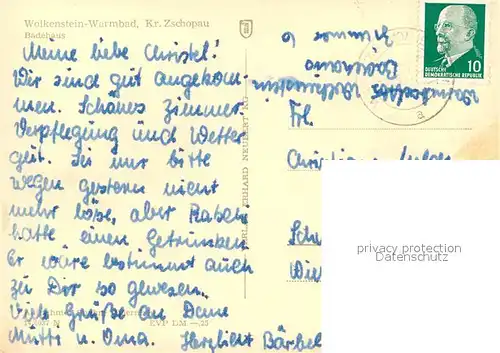 Wolkenstein-Warmbad, Kr. Zschopau
Badehaus
Meine liebe Christel!
Wir sind gut angekom-
men. Schönes Zimmer
Verpflegung und Wetter
gut. Sei mir bitte
wegen gestern nicht
mehr böse, aber
hatte einen getrunken
Er wäre bestimmt auch
zu Dir so gewesen.
Viele Grüße an Deine
Mutti u. Oma. Herzlichst Bärbel
EVP DM —,25
VERLAG ERHARD NEUBERT KG
Zimmer 6
Badehaus
Wolkenstein
10
DEUTSCHE
DEMOKRATISCHE REPUBLIK
a
Frl.
privacy protection
Datenschutz